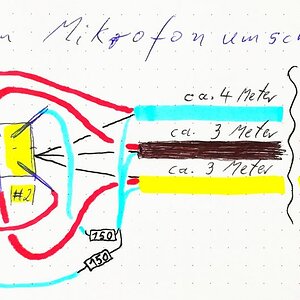 n Mikrofonumsch
ca. 4 Meter
ca. 3 Meter
ca. 3 Meter
#2
150
150